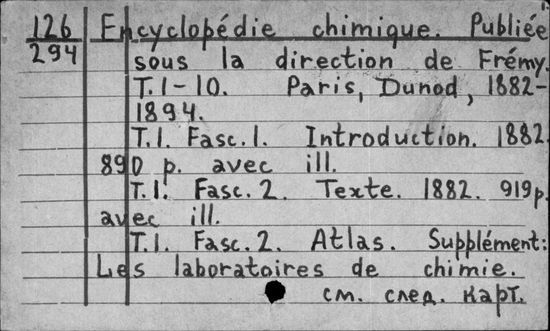 126 Encyclopédie chimique. Publiée
294 sous la direction de Frémy.
T.1-10. Paris, Dunod, 1882-
1894.
T.1. Fasc.1. Introduction. 1882.
890 p. avec ill.
T.1. Fasc.2. Texte. 1882. 919p.
avec ill.
T.1. Fasc.2. Atlas. Supplément:
Les laboratoires de chimie.
см. след. карт.